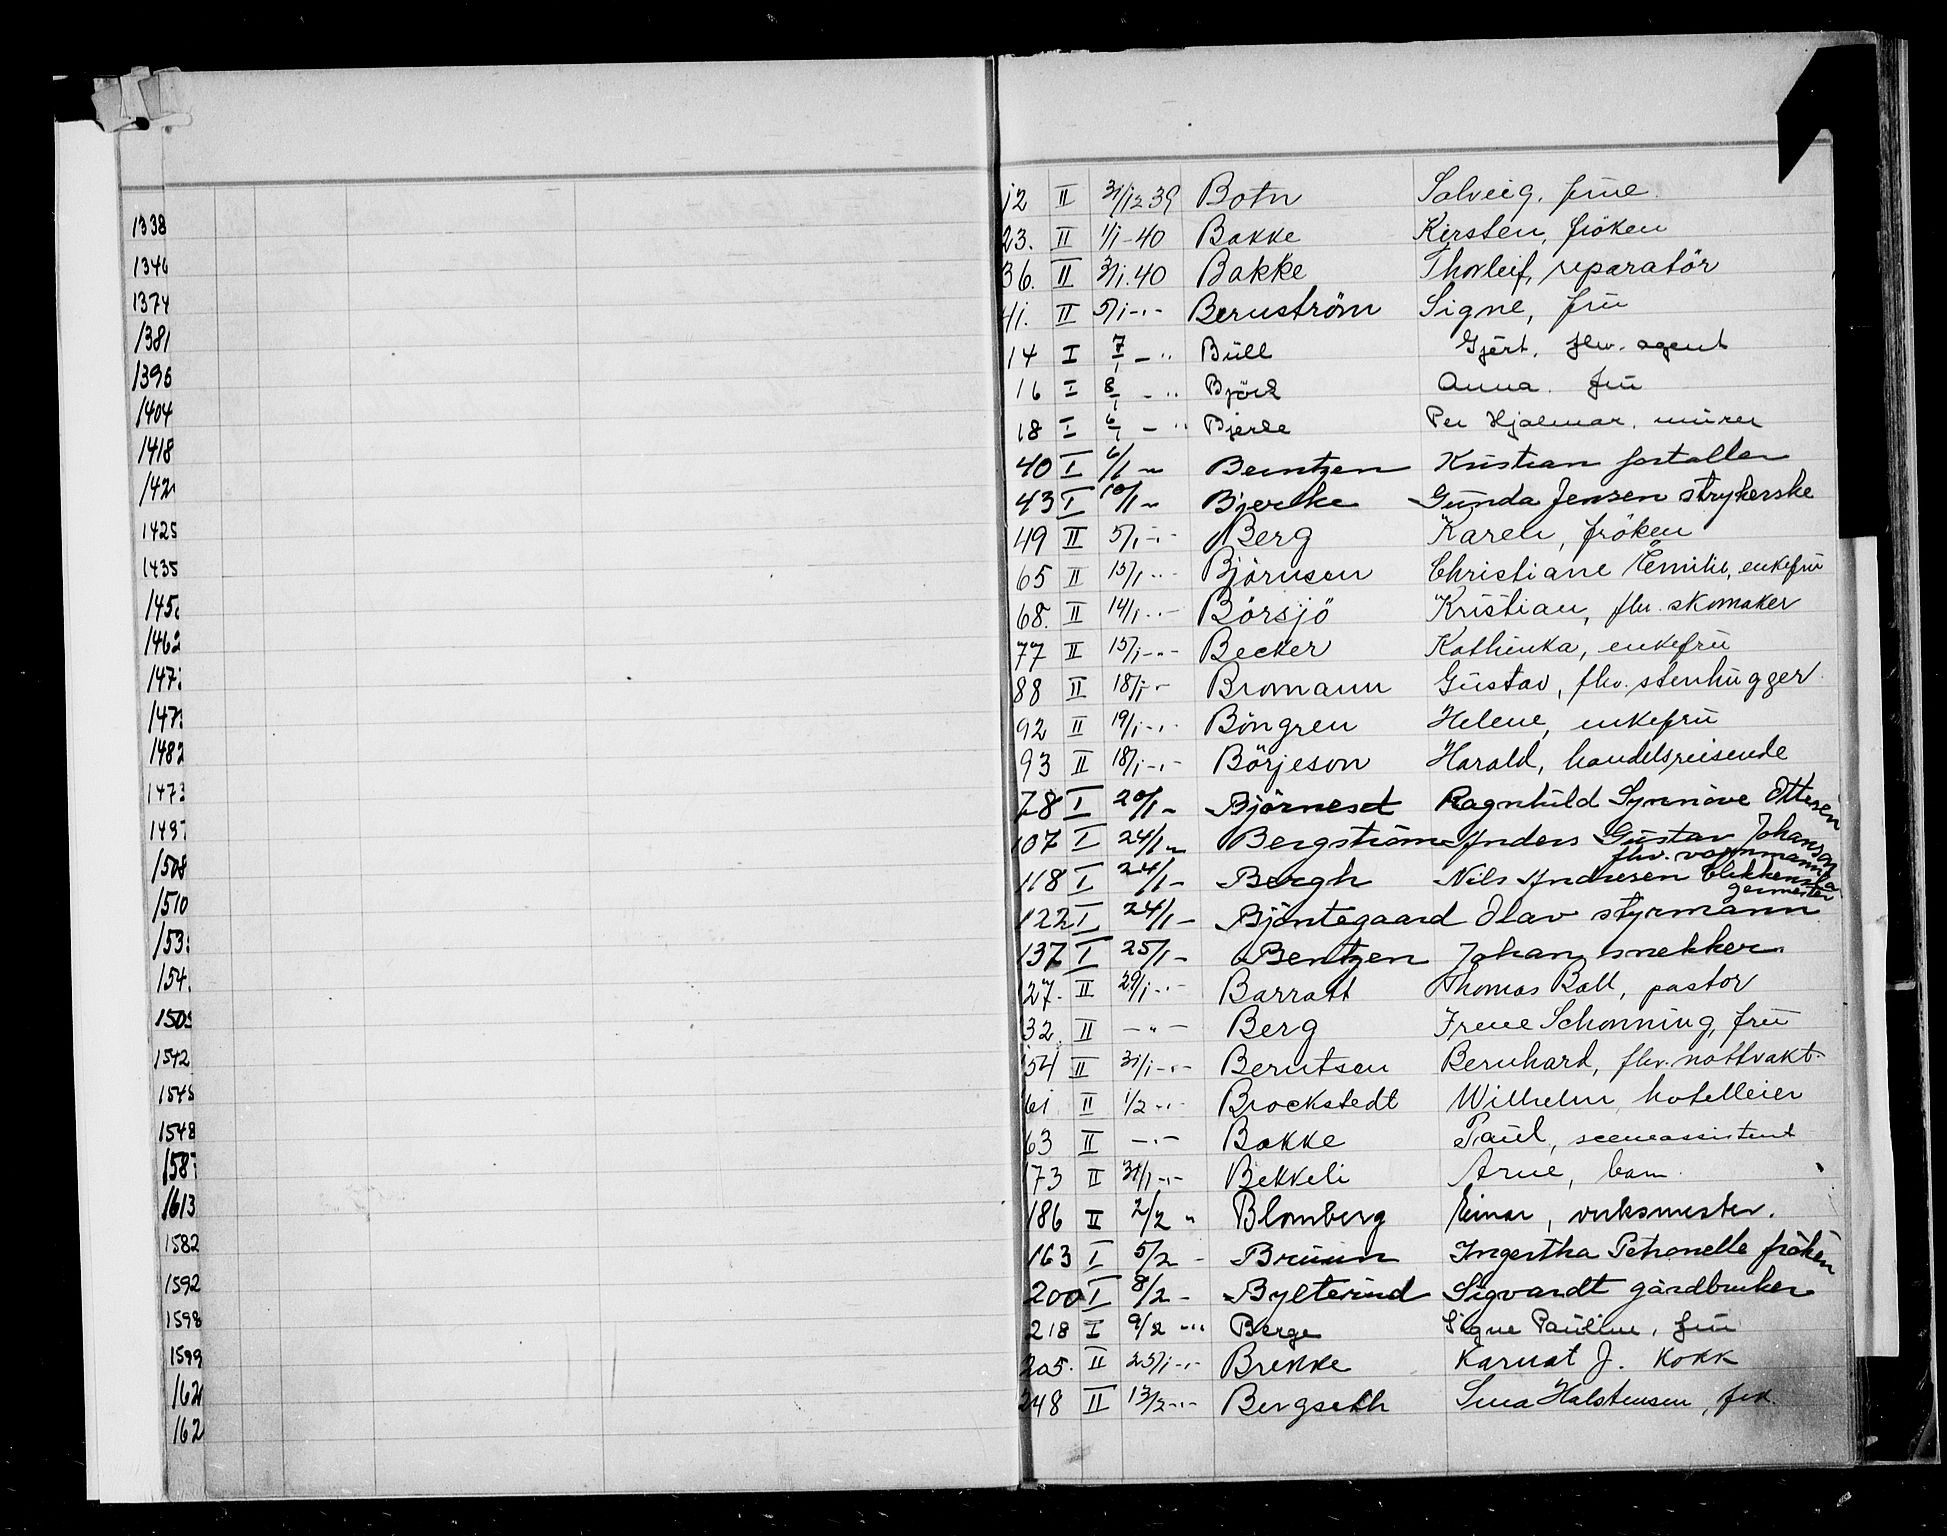 1338
1346
1374
1381
1396
1404
1418
142
1425
1435
145
1462
147
147
1482
1473
149
1508
1510
153
154
150
1542
1545
1548
158
1613
1582
1592
1598
1599
162
162
12 II 31/12 39 Botn Solveig, frue
23. II 1/1-40 Bakke Kirsten, fröken
36. II 3/1.40 Bakke Thorleif, reparatör
41. II 5/1 -"- Bernström Signe, fru
14 I 7/1 - " Bull Gjert, fhv. agent
16 I 8/1 - " Björk Anna. fru
18 I 6/1 - " Bjerke Per Hjalmar, murer
40 I 6/1 " Berntzen Kristian forvalter
43 I 10/1 " Bjercke Gunda Jensen strykerske
49 II 5/1 -"- Berg Karen, fröken
65 II 15/1 -"- Björnsen Christiane Emilie, enkefru
68. II 14/1 -"- Börsjö Kristian, fhv. skomaker
77 II 15/1 -"- Becker Kathinka, enkefru
88 II 18/1 -"- Bromann Gustav, fhv. stenhugger
92 II 19/1 -"- Böngren Helene, enkefru
93 II 18/1 -"- Börjeson Harald, handelsreisende
78 I 20/1 " Björneset Ragnhild Synnöve Ottesen
107 I 24/1 " Bergström Anders Gustav Johanson
fhv. vognmann
118 I 24/1 - Bergh Nils Andresen blikkensla
germester
122 I 24/1 - Bjöntegaard Olav styrmann
137 I 25/1 - Bentzen Johan snekker
27. II 29/1 -"- Barratt Thomas Ball, pastor
32 II -"- Berg Irene Schonning, fru
54 II 31/1 -"- Berntsen Bernhard, fhv. nattvakt
61 II 1/2 -"- Brockstedt Wilhelm, hotelleier
63 II -"- Bakke Paul, sceneassistent
73 II 31/1 -"- Bekkeli Arne, barn
186 II 2/2 " Blomberg Einar, verksmester.
163 I 5/2 - Bruun Ingertha Petronelle fröken
200 I 8/2 - Bylterud Sigvardt gårdbruker
218 I 9/2 -" Berge Signe Pauline, fru
205. II 25/1 -"- Brekke Karnot J. Kokk
248 II 13/2 -"- Bergseth Sina Halstensen, frk.